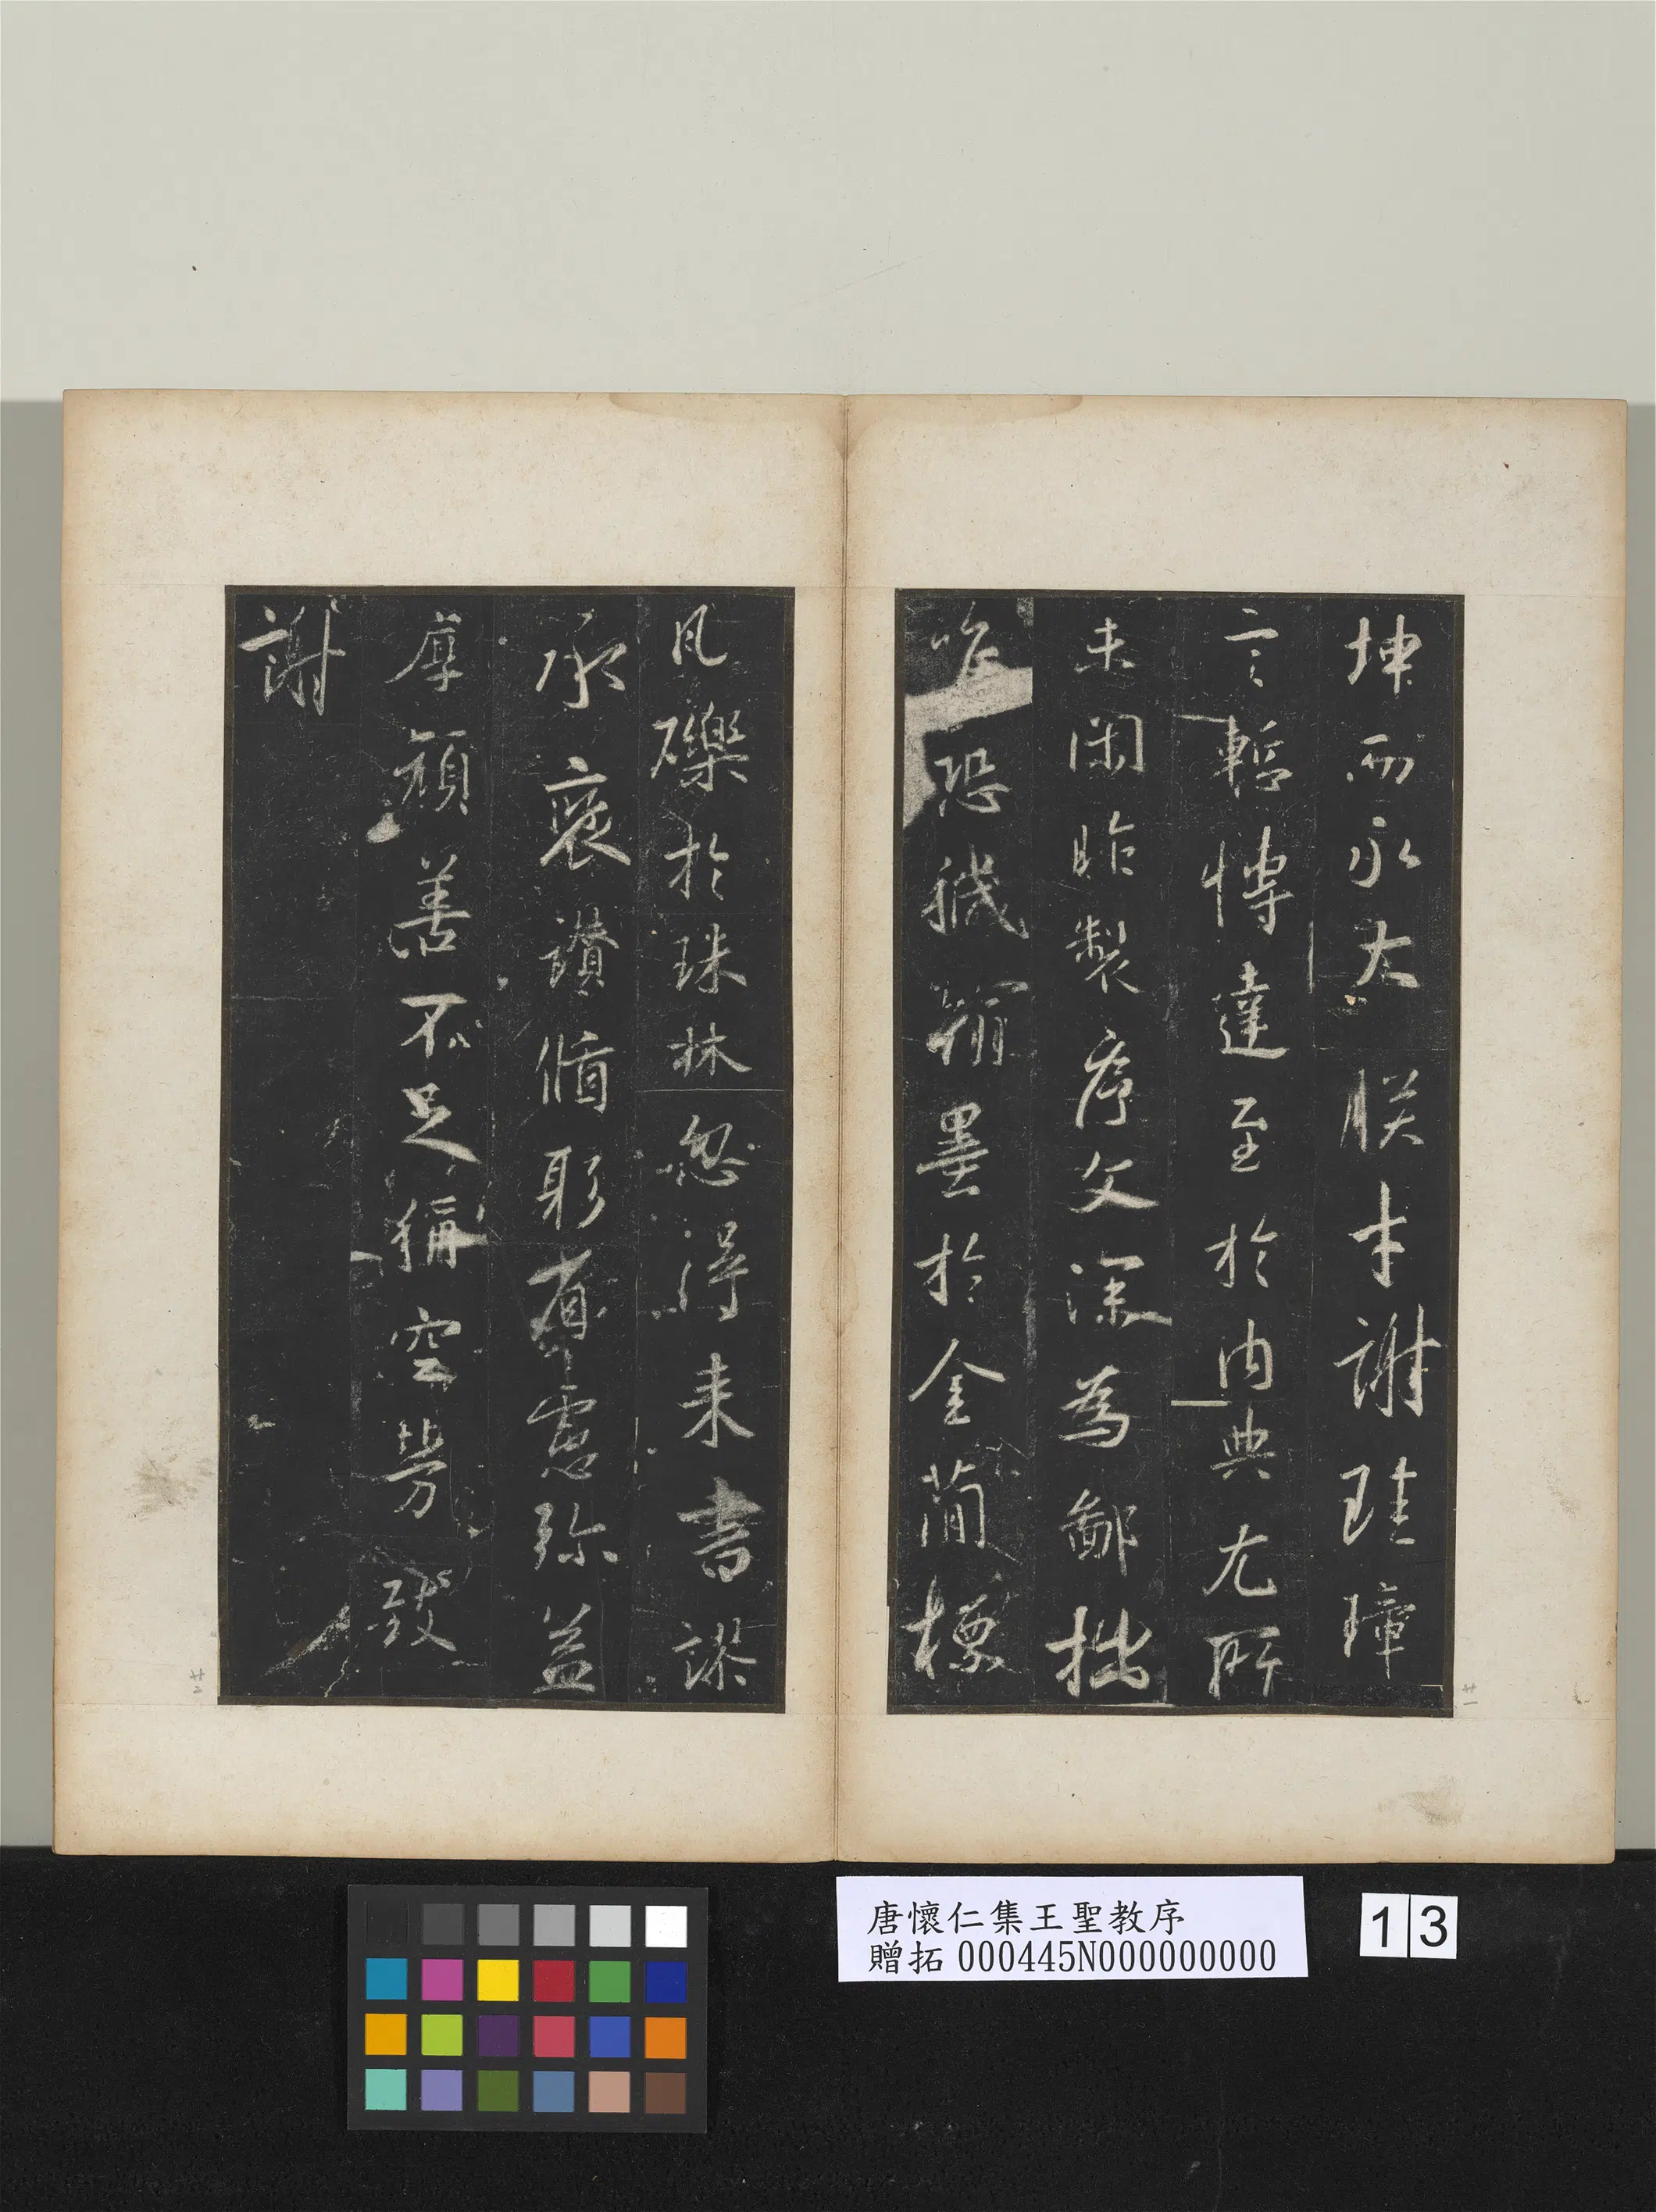 坤而永大朕才謝珪璋
言慙博達至於内典尤所
未閑昨製序文深為鄙拙
唯恐穢翰墨於金簡標
瓦礫於珠林忽得来書謬
承褒讃循躬省慮弥益
厚顔善不足稱空勞致
謝
廿一
廿二
唐懷仁集王聖教序
贈拓 000445N000000000
13